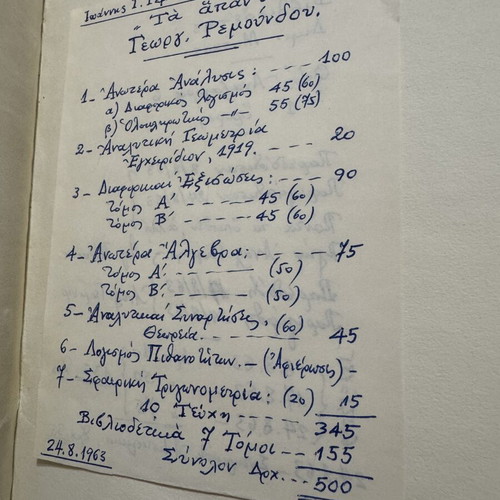 Ἰωάννης Γ.
"Τὰ ἅπαν
Γεωργ. Ρεμούνδου.
1- Ἀνωτέρα Ἀνάλυσις: --- 100
α) Διαφορικὸς Λογισμός 45 (60)
β) Ὁλοκληρωτικὸς -"- 55 (75)
2- Ἀναλυτικὴ Γεωμετρία
Ἐγχειρίδιον, 1919. ---- 20
3- Διαφορικαὶ Ἐξισώσεις: --- 90
τόμος Α΄ ---- 45 (60)
τόμος Β΄ ---- 45 (60)
4- Ἀνωτέρα Ἄλγεβρα: ---- 75
τόμος Α΄. ------ (50)
τόμος Β΄. ------ (50)
5- Ἀναλυτικαὶ Συναρτήσεις, (60) 45
Θεωρεία ---
6- Λογισμὸς Πιθανοτήτων. - (Ἀφιέρωσις) -
7- Σφαιρικὴ Τριγωνομετρία: (20) 15
10 Τεύχη ---- 345
Βιβλιοδετικὰ 7 Τόμοι -- 155
Σύνολον Δρχ. --- 500
24.8.1963